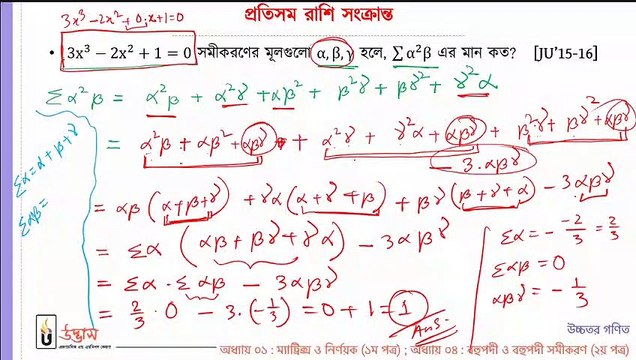 প্রতিসম রাশি সংক্রান্ত
3x³ −2x² + 0.x+1=0
• 3x³ − 2x² + 1 = 0 সমীকরণের মূলগুলো α, β, γ হলে, ∑ α²β এর মান কত? [JU'15-16]
Σα²β = α²β + α²γ + αβ² + β²γ + βγ² + γ²α
= α²β + αβ² + αβγ + α²γ + γ²α + αβγ + β²γ + βγ² + αβγ
− 3.αβγ
= αβ (α+β+γ) + γα (α+γ+β) + βγ (β+γ+α) − 3αβγ
= Σα (αβ + βγ + γα) − 3αβγ
= Σα . Σαβ − 3αβγ
= 2/3 . 0 − 3.(−1/3) = 0 + 1 = 1
Ans-
Σα = α+β+γ
Σαβ =
Σα = − −2/3 = 2/3
Σαβ = 0
αβγ = − 1/3
উদ্ভাস
উচ্চতর গণিত
অধ্যায় ০১ : ম্যাট্রিক্স ও নির্ণায়ক (১ম পত্র) ; অধ্যায় ০৪ : বহুপদী ও বহুপদী সমীকরণ (২য় পত্র)